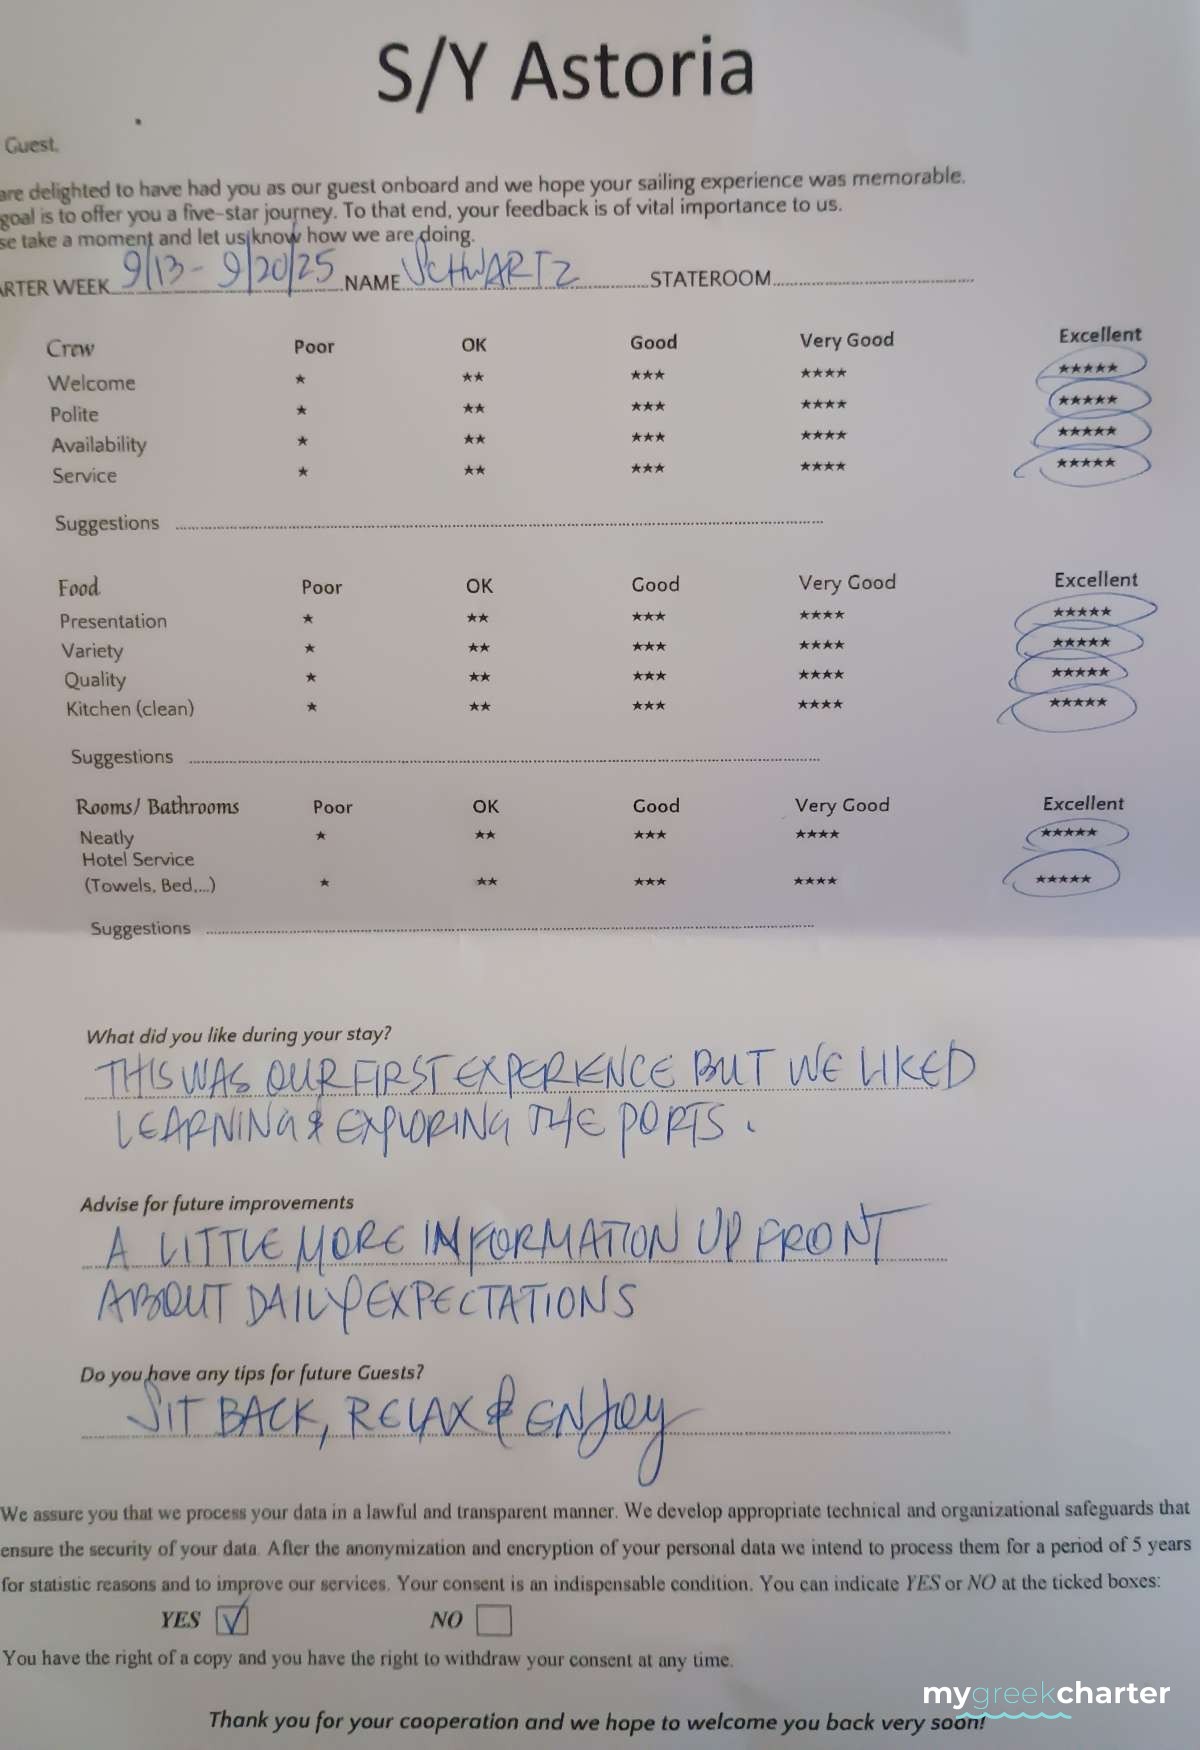 S/Y Astoria
Guest,
are delighted to have had you as our guest onboard and we hope your sailing experience was memorable.
goal is to offer you a five-star journey. To that end, your feedback is of vital importance to us.
se take a moment and let us know how we are doing.
ARTER WEEK 9/13 - 9/20/25 NAME SCHWARTZ STATEROOM
Crew Poor OK Good Very Good Excellent
Welcome ★ ★★ ★★★ ★★★★ ★★★★★
Polite ★ ★★ ★★★ ★★★★ ★★★★★
Availability ★ ★★ ★★★ ★★★★ ★★★★★
Service ★ ★★ ★★★ ★★★★ ★★★★★
Suggestions
Food Poor OK Good Very Good Excellent
Presentation ★ ★★ ★★★ ★★★★ ★★★★★
Variety ★ ★★ ★★★ ★★★★ ★★★★★
Quality ★ ★★ ★★★ ★★★★ ★★★★★
Kitchen (clean) ★ ★★ ★★★ ★★★★ ★★★★★
Suggestions
Rooms/ Bathrooms Poor OK Good Very Good Excellent
Neatly ★ ★★ ★★★ ★★★★ ★★★★★
Hotel Service
(Towels, Bed,...) ★ ★★ ★★★ ★★★★ ★★★★★
Suggestions
What did you like during your stay?
THIS WAS OUR FIRST EXPERIENCE BUT WE LIKED
LEARNING & EXPLORING THE PORTS.
Advise for future improvements
A LITTLE MORE INFORMATION UP FRONT
ABOUT DAILY EXPECTATIONS
Do you have any tips for future Guests?
SIT BACK, RELAX & ENJOY
We assure you that we process your data in a lawful and transparent manner. We develop appropriate technical and organizational safeguards that
ensure the security of your data. After the anonymization and encryption of your personal data we intend to process them for a period of 5 years
for statistic reasons and to improve our services. Your consent is an indispensable condition. You can indicate YES or NO at the ticked boxes:
YES ☑ NO ☐
You have the right of a copy and you have the right to withdraw your consent at any time.
mygreekcharter
Thank you for your cooperation and we hope to welcome you back very soon!